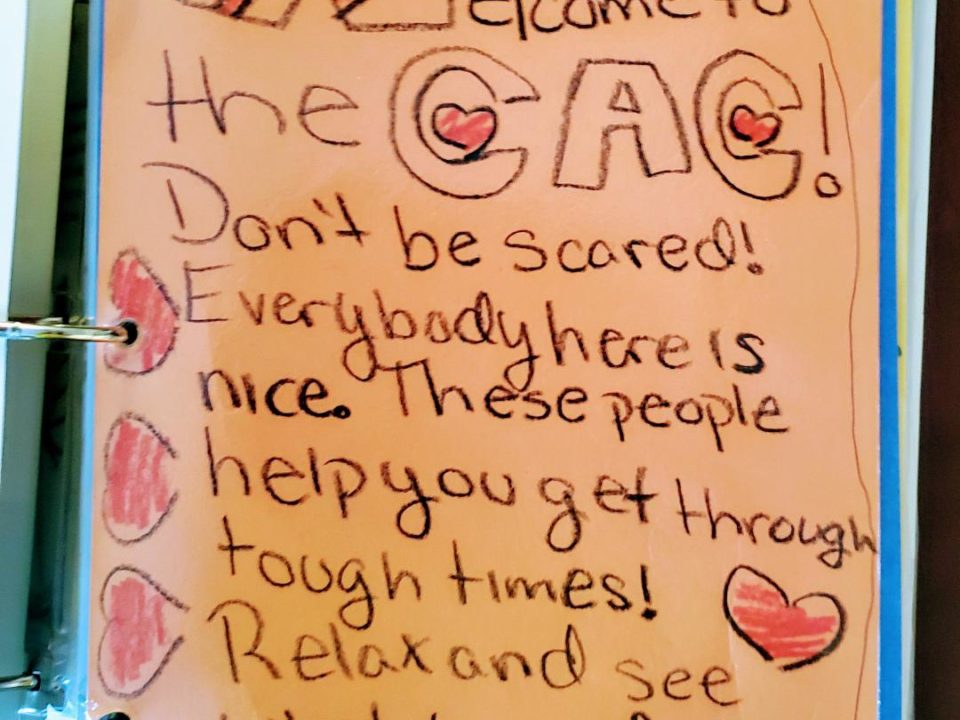 Welcome to
the CAC!
Don't be scared!
Everybody here is
nice. These people
help you get through
tough times!
Relax and see